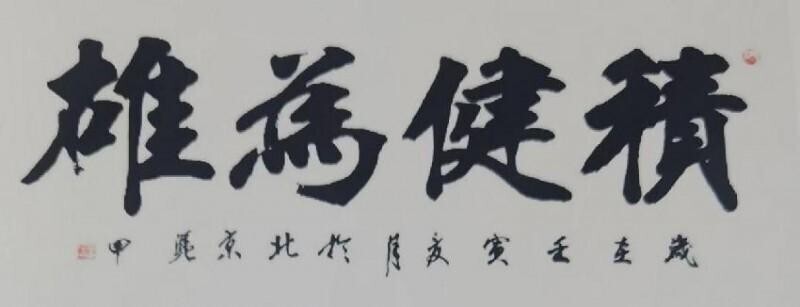 積健為雄
歲在壬寅夏月於北京